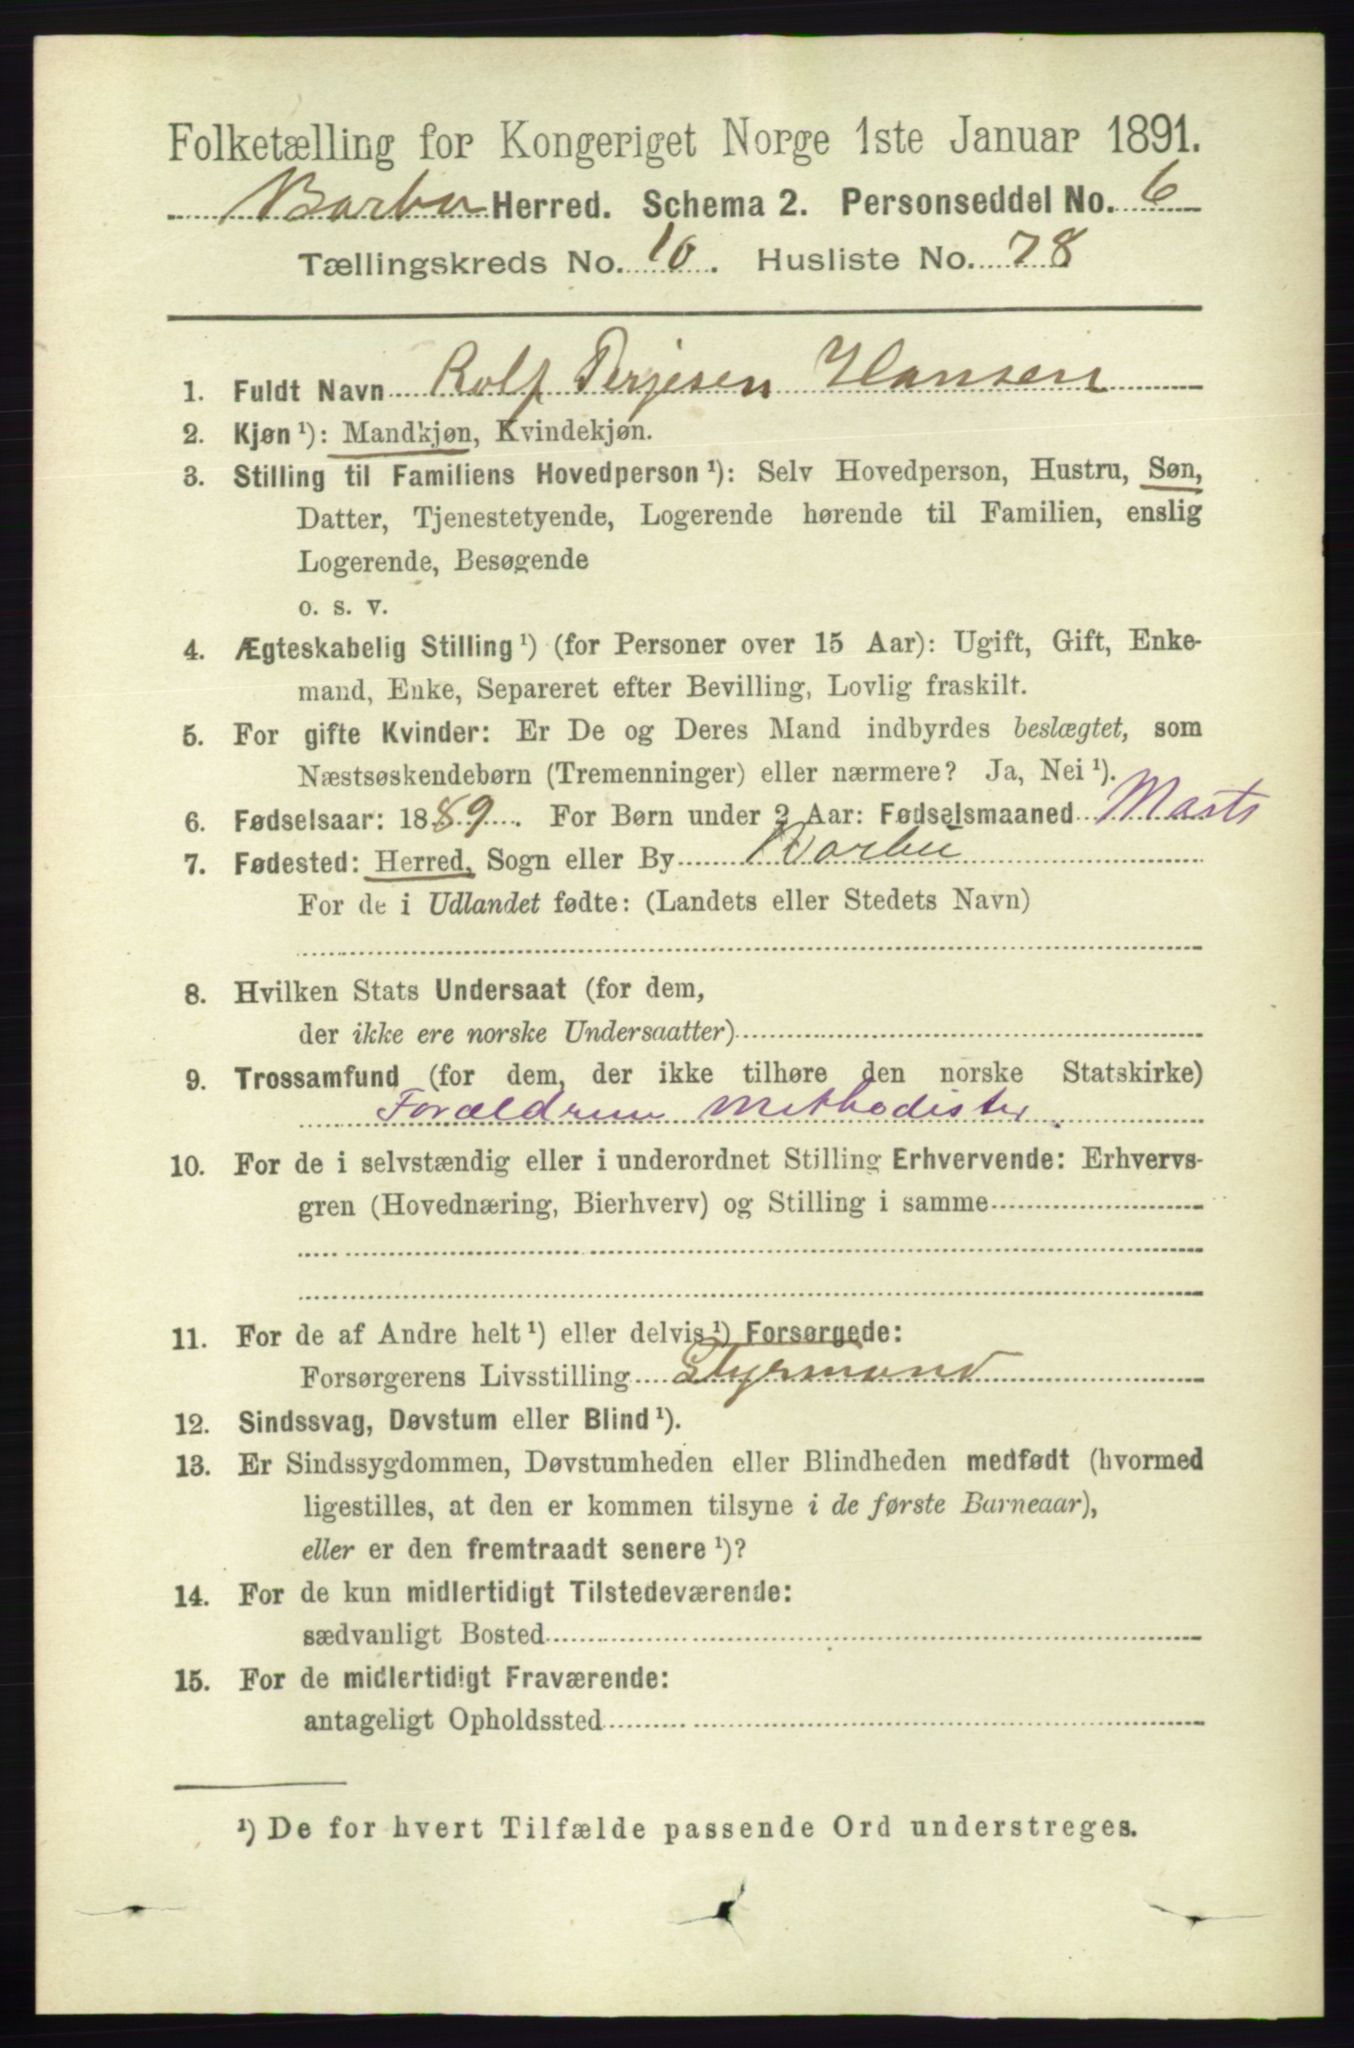 Folketælling for Kongeriget Norge 1ste Januar 1891.
Barbu Herred. Schema 2. Personseddel No. 6
Tællingskreds No. 10. Husliste No. 78
1. Fuldt Navn Rolf Terjesen Hansen
2. Kjøn¹): Mandkjøn, Kvindekjøn.
3. Stilling til Familiens Hovedperson¹): Selv Hovedperson, Hustru, Søn,
Datter, Tjenestetyende, Logerende hørende til Familien, enslig
Logerende, Besøgende
o. s. v.
4. Ægteskabelig Stilling¹) (for Personer over 15 Aar): Ugift, Gift, Enke-
mand, Enke, Separeret efter Bevilling, Lovlig fraskilt.
5. For gifte Kvinder: Er De og Deres Mand indbyrdes beslægtet, som
Næstsøskendebørn (Tremenninger) eller nærmere? Ja, Nei¹).
6. Fødselsaar: 1889. For Børn under 2 Aar: Fødselsmaaned Marts
7. Fødested: Herred, Sogn eller By Barbu
For de i Udlandet fødte: (Landets eller Stedets Navn)
8. Hvilken Stats Undersaat (for dem,
der ikke ere norske Undersaatter)
9. Trossamfund (for dem, der ikke tilhøre den norske Statskirke)
Forældrene Methodister.
10. For de i selvstændig eller i underordnet Stilling Erhvervende: Erhvervs-
gren (Hovednæring, Bierhverv) og Stilling i samme
11. For de af Andre helt¹) eller delvis¹) Forsørgede:
Forsørgerens Livsstilling Styrmand
12. Sindssvag, Døvstum eller Blind¹).
13. Er Sindssygdommen, Døvstumheden eller Blindheden medfødt (hvormed
ligestilles, at den er kommen tilsyne i de første Barneaar),
eller er den fremtraadt senere¹)?
14. For de kun midlertidigt Tilstedeværende:
sædvanligt Bosted
15. For de midlertidigt Fraværende:
antageligt Opholdssted
¹) De for hvert Tilfælde passende Ord understreges.